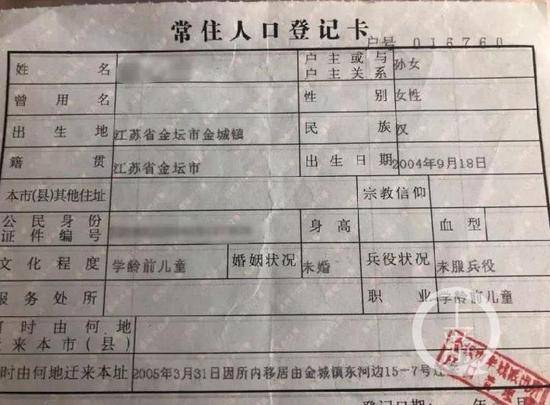 常住人口登记卡
户号 016760
姓名 户主或与户主关系 孙女
曾用名 性别 女性
出生地 江苏省金坛市金城镇 民族 汉
籍贯 江苏省金坛市 出生日期 2004年9月18日
本市(县)其他住址 宗教信仰
公民身份证件编号 身高 血型
文化程度 学龄前儿童 婚姻状况 未婚 兵役状况 未服兵役
服务处所 职业 学龄前儿童
时由何地
来本市(县)
时由何地迁来本址 2005年3月31日因所内移居由金城镇东河边15-7号迁
登记日期